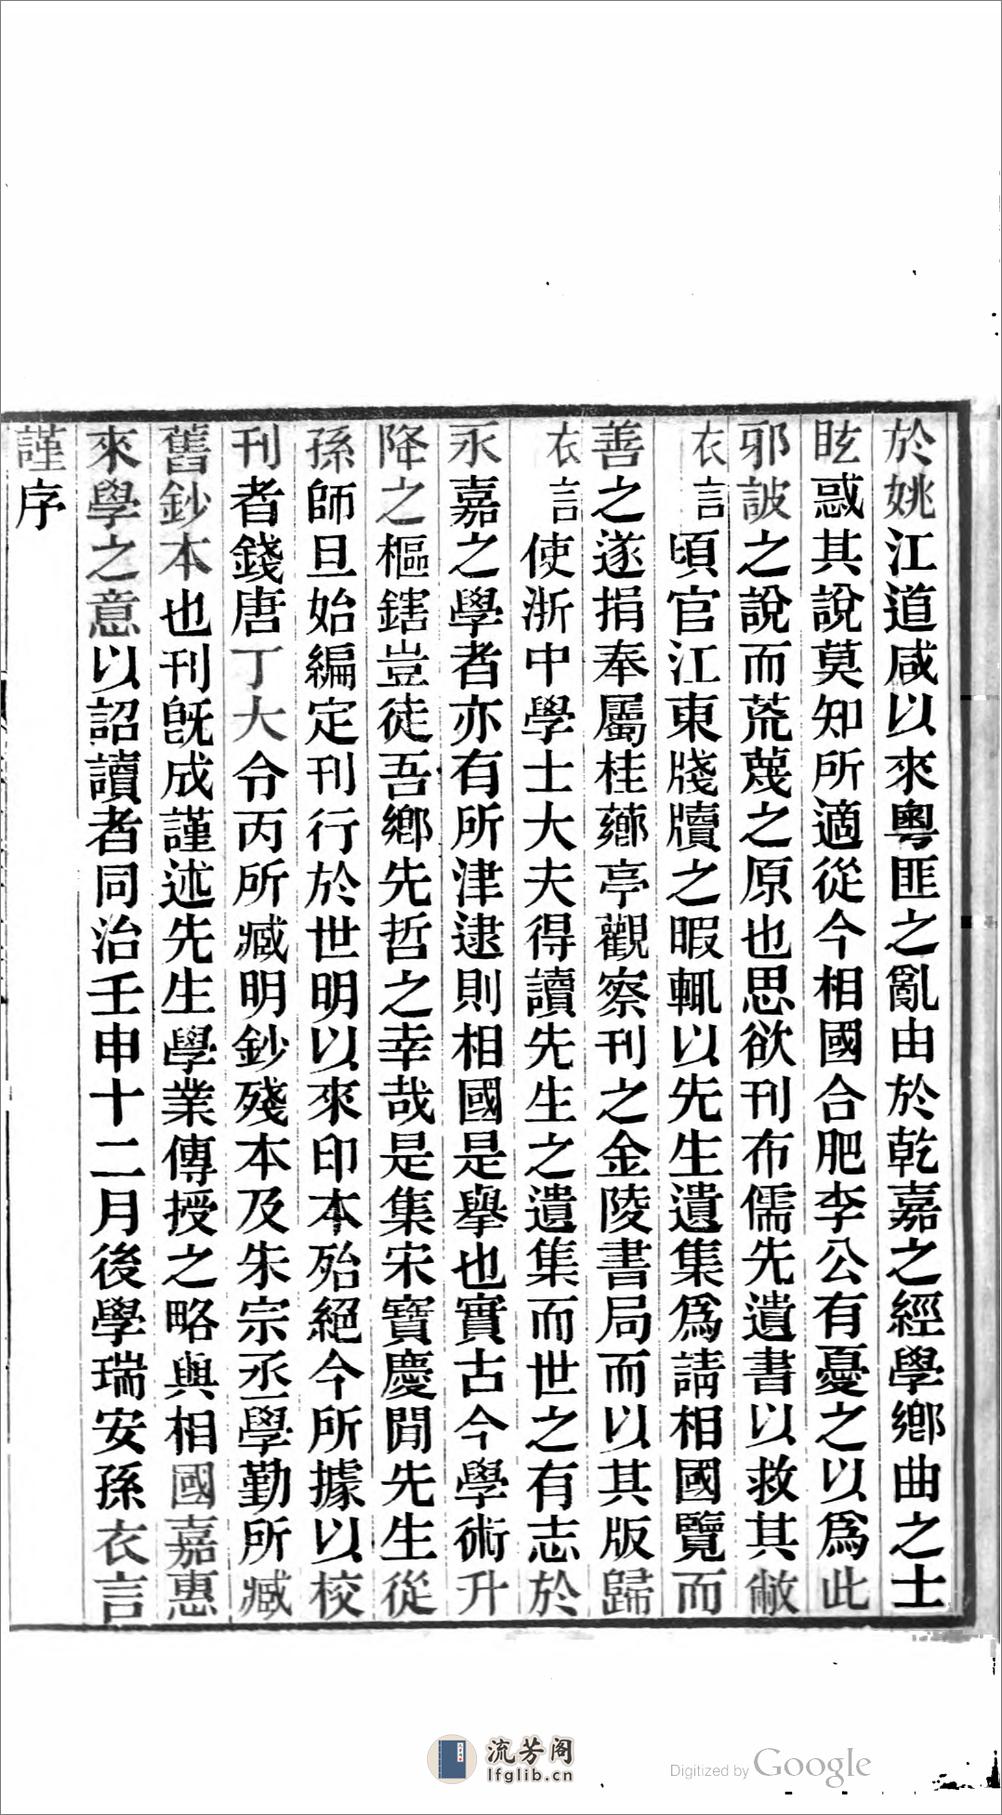 於姚江道咸以來粵匪之亂由於乾嘉之經學鄉曲之士
眩惑其說莫知所適從今相國合肥李公有憂之以爲此
邪詖之說而荒蔑之原也思欲刊布儒先遺書以救其敝
衣言頃官江東牋牘之暇輒以先生遺集爲請相國覽而
善之遂捐奉屬桂薌亭觀察刊之金陵書局而以其版歸
衣言使浙中學士大夫得讀先生之遺集而世之有志於
永嘉之學者亦有所津逮則相國是舉也實古今學術升
降之樞鎋豈徒吾鄉先哲之幸哉是集宋寶慶閒先生從
孫師旦始編定刊行於世明以來印本殆絕今所據以校
刊者錢唐丁大令丙所臧明鈔殘本及朱宗丞學勤所臧
舊鈔本也刊旣成謹述先生學業傳授之略與相國嘉惠
來學之意以詔讀者同治壬申十二月後學瑞安孫衣言
謹序
流芳阁
lfglib.cn
Digitized by Google